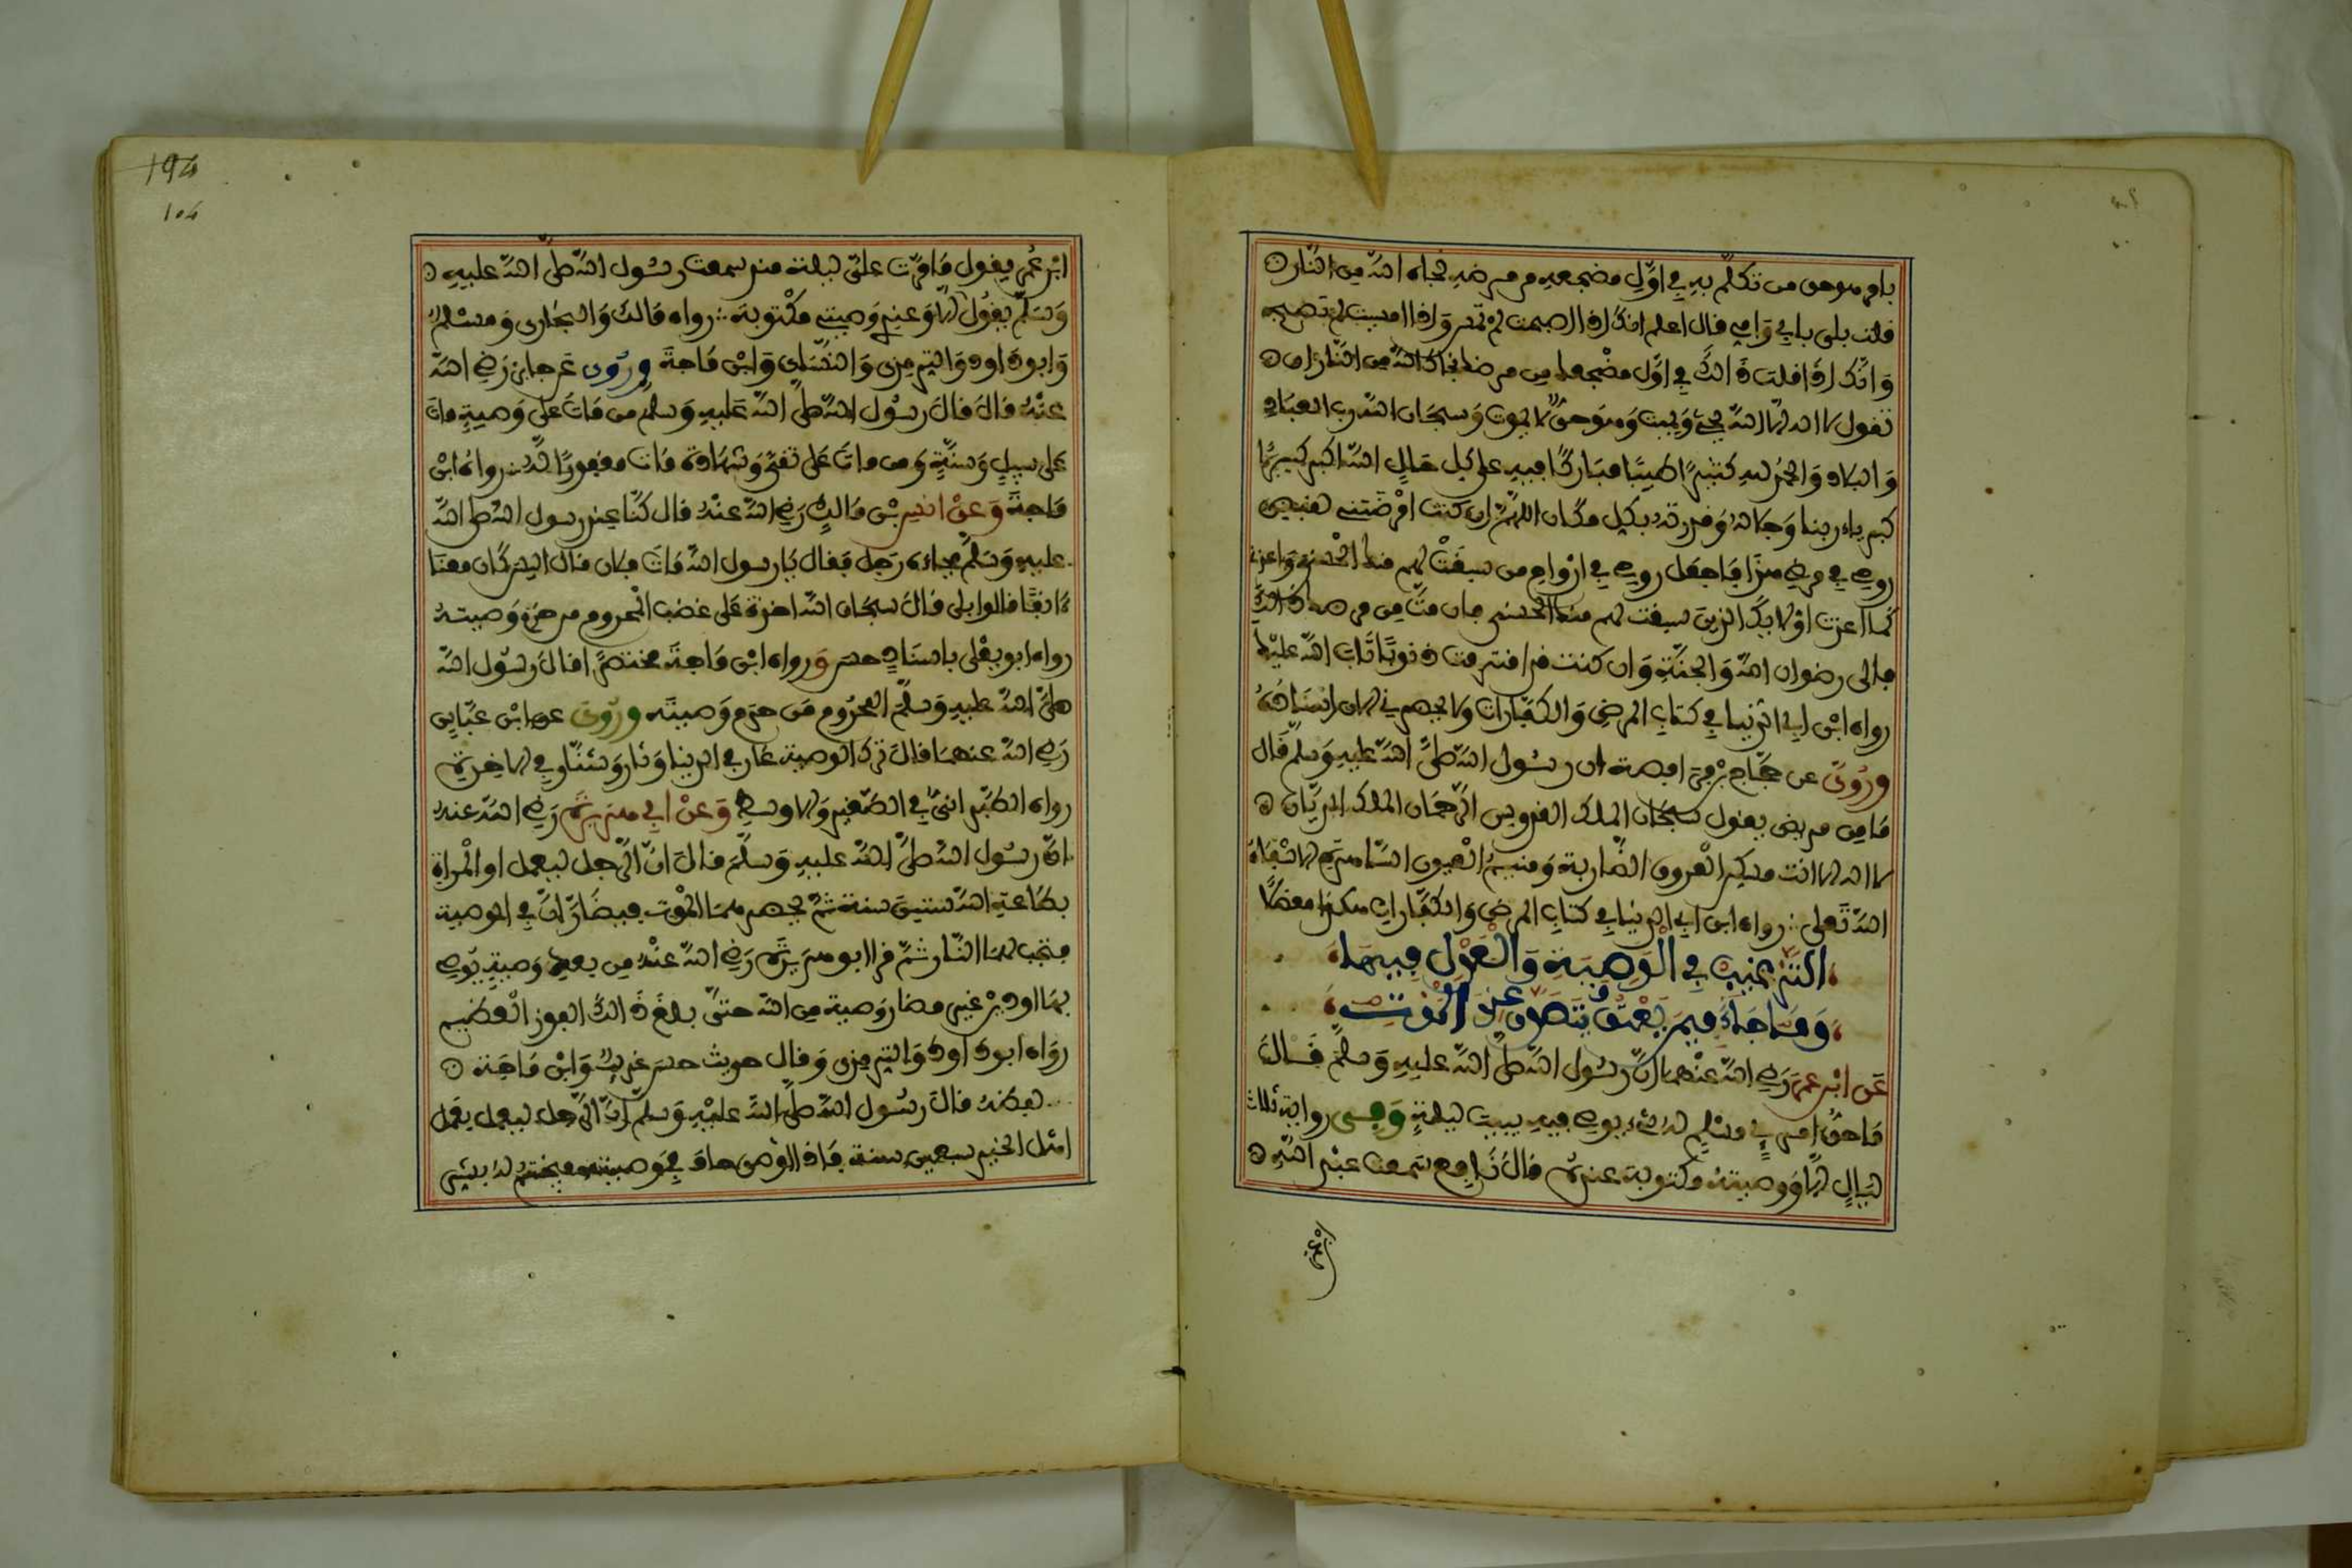 بامر هو حق من تكلم به في اول مضجعه من مرضه نجاه الله من النار
قلت بلى بابي وامي قال اعلم انك اذا اصبحت لم تمس واذا امسيت لم تصبح
وانك اذا قلت ذالك في اول مضجعك من مرضك نجاك الله من النار ان
تقول لا اله الا الله يحيي ويميت وهو حي لا يموت وسبحان الله رب العباد
والبلاد والحمد لله كثيرا طيبا مباركا فيه على كل حال الله اكبر كبيرا
كبرياء ربنا وجلاله وقدرته بكل مكان اللهم ان كنت امرضتني لتقبض
روحي في مرضي هذا فاجعل روحي في ارواح من سبقت لهم منك الحسنى واعذني
كما اعذت اولايك الذين سبقت لهم منك الحسنى فان مت من مرضك ذالك
فالى رضوان الله والجنة وان كنت قد افترفت ذنوبا تاب الله عليك
رواه ابن ابي الدنيا في كتاب المرض والكفارات ولا يحضرني الان اسناده
وروي عن حجاج بن فرافصة ان رسول الله صلى الله عليه وسلم قال
ما من مريض يقول سبحان الملك القدوس الرحمان الملك الديان
لا اله الا انت مسكن العروق الضاربة ومنيم العيون الساهرة الا شفاه
الله تعلى رواه ابن ابي الدنيا في كتاب المرض والكفارات هكذا معضلا
الترغيب في الوصية والعدل فيها
وما جاء فيمن يعتق ويتصدق عند الموت
عن ابن عمر رضي الله عنهما ان رسول الله صلى الله عليه وسلم قال
ما حق امرئ مسلم له شيء يوصي فيه يبيت ليلة وفي رواية ثلاث
ليال الا ووصيته مكتوبة عنده قال نافع سمعت عبد الله
ابن عمر
194
104
ابن عمر يقول ما مرت علي ليلة منذ سمعت رسول الله صلى الله عليه
وسلم يقول الا وعندي وصيتي مكتوبة رواه مالك والبخاري ومسلم
وابو داود والترمذي والنسائي وابن ماجة وروي عن جابر رضي الله
عنه قال قال رسول الله صلى الله عليه وسلم من مات على وصية مات
على سبيل وسنة ومن مات على تقى وشهادة مات مغفورا له رواه ابن
ماجة وعن انس بن مالك رضي الله عنه قال كنا عند رسول الله صلى الله
عليه وسلم فجاءه رجل فقال يا رسول الله مات فلان قال اليس كان معنا
ءانفا قالوا بلى قال سبحان الله اخذة على غضب المحروم من حرم وصيته
رواه ابو يعلى باسناد حسن ورواه ابن ماجة مختصرا قال رسول الله
صلى الله عليه وسلم المحروم من حرم وصيته وروي عن ابن عباس
رضي الله عنهما قال ترك الوصية عار في الدنيا ونار وشنار في الاخرة
رواه الطبراني في الصغير والاوسط وعن ابي هريرة رضي الله عنه
ان رسول الله صلى الله عليه وسلم قال ان الرجل ليعمل او المراة
بطاعة الله ستين سنة ثم يحضرهما الموت فيضاران في الوصية
فتجب لهما النار ثم قرا ابو هريرة رضي الله عنه من بعد وصية يوصي
بها او دين غير مضار وصية من الله حتى بلغ ذالك الفوز العظيم
رواه ابو داود والترمذي وقال حديث حسن غريب وابن ماجة
ولفظه قال رسول الله صلى الله عليه وسلم ان الرجل ليعمل بعمل
اهل الخير سبعين سنة فاذا اوصى حاف في وصيته فيختم له بشر